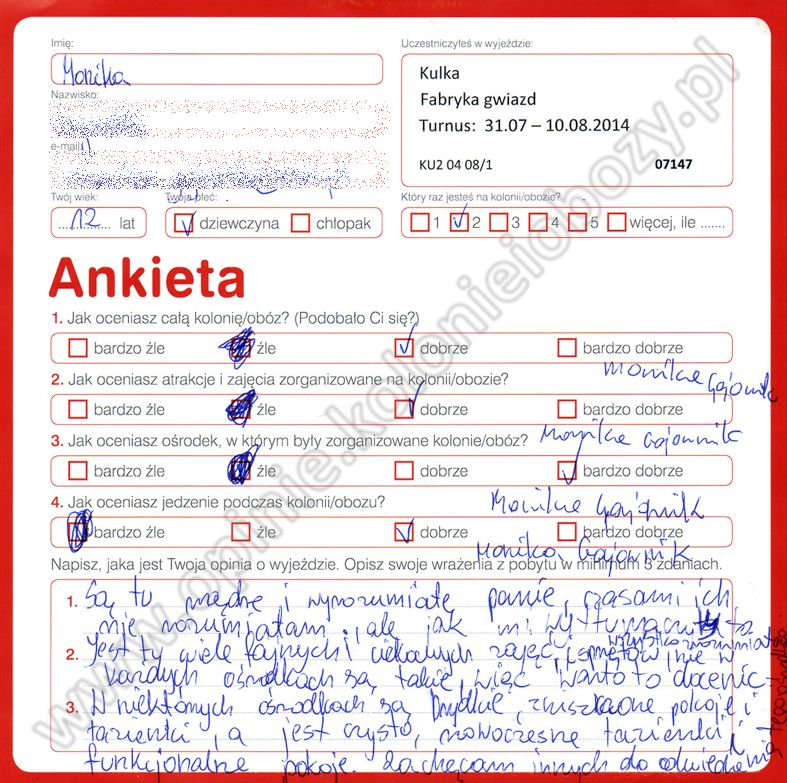 Imię:
Monika
Nazwisko:
e-mail
Twój wiek:
12 lat
Twoja płeć:
dziewczyna chłopak
Uczestniczyłeś w wyjeździe:
Kulka
Fabryka gwiazd
Turnus: 31.07 – 10.08.2014
KU2 04 08/1 07147
Który raz jesteś na kolonii/obozie?
1 2 3 4 5 więcej, ile .......
Ankieta
1. Jak oceniasz całą kolonię/obóz? (Podobało Ci się?)
bardzo źle źle dobrze bardzo dobrze
Monika Gajownik
2. Jak oceniasz atrakcje i zajęcia zorganizowane na kolonii/obozie?
bardzo źle źle dobrze bardzo dobrze
3. Jak oceniasz ośrodek, w którym były zorganizowane kolonie/obóz? Monika Gajownik
bardzo źle źle dobrze bardzo dobrze
4. Jak oceniasz jedzenie podczas kolonii/obozu? Monika Gajownik
bardzo źle źle dobrze bardzo dobrze
Monika Gajownik
Napisz, jaka jest Twoja opinia o wyjeździe. Opisz swoje wrażenia z pobytu w minimum 3 zdaniach.
1. Są tu mądre i wyrozumiałe panie, czasami ich
nie rozumiałam, ale jak mi wytłumaczyła
wszystko zrozumiałam
2. Jest tu wiele fajnych i ciekawych zajęć, nie w
każdych ośrodkach są takie, więc warto to docenić.
3. W niektórych ośrodkach są brzydkie, zniszczone pokoje i
łazienki, a jest czysto, nowoczesne łazienki i
funkcjonalne pokoje. Zachęcam innych do odwiedzenia
tego ośrodka.
www.opinie.kolonieiobozy.pl